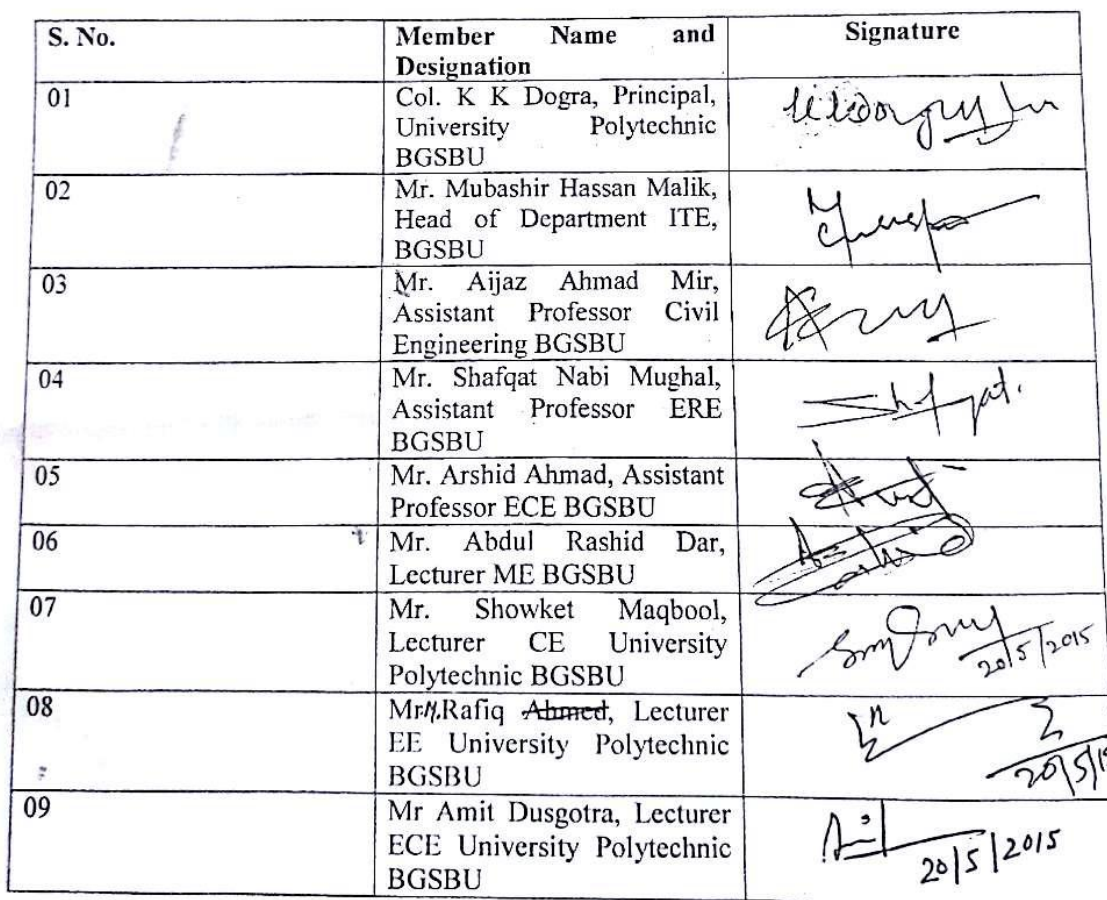 S. No. Member Name and Signature
Designation
01 Col. K K Dogra, Principal,
University Polytechnic
BGSBU
02 Mr. Mubashir Hassan Malik,
Head of Department ITE,
BGSBU
03 Mr. Aijaz Ahmad Mir,
Assistant Professor Civil
Engineering BGSBU
04 Mr. Shafqat Nabi Mughal, Shafqat.
Assistant Professor ERE
BGSBU
05 Mr. Arshid Ahmad, Assistant
Professor ECE BGSBU
06 Mr. Abdul Rashid Dar,
Lecturer ME BGSBU
07 Mr. Showket Maqbool,
Lecturer CE University 20/5/2015
Polytechnic BGSBU
08 Mr M. Rafiq Ahmed, Lecturer
EE University Polytechnic 20/5/15
BGSBU
09 Mr Amit Dusgotra, Lecturer
ECE University Polytechnic 20/5/2015
BGSBU